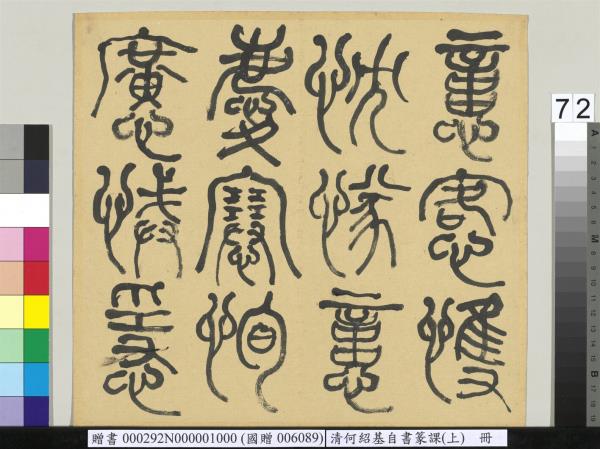 愙愯
忱
慶𡫳恂
懬悈㥯
72
贈書 000292N000001000 (國贈 006089) 清何紹基自書篆課(上) 冊